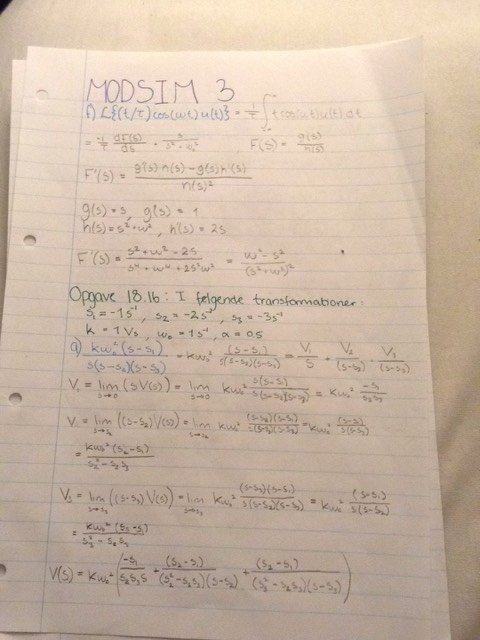 MODSIM 3
f) L{(t/τ)cos(ωt)u(t)} = 1/τ ∫ t cos(ωt)u(t) dt
= -1/τ dF(s)/ds · s/(s²+ω²)   F(s) = g(s)/h(s)
F'(s) = (g'(s)h(s)-g(s)h'(s))/h(s)²
g(s)=s, g'(s) = 1
h(s)=s²+ω², h'(s) = 2s
F'(s) = (s²+ω²-2s)/(s⁴+ω⁴+2s²ω²) = (ω²-s²)/(s²+ω²)²
Opgave 18.16: I følgende transformationer:
s₁=-1s⁻¹, s₂=-2s⁻¹, s₃=-3s⁻¹
k = 1Vs, ω₀ = 1s⁻¹, α = 0.5
a) kω₀²(s-s₁)/(s(s-s₂)(s-s₃)) = kω₀² (s-s₁)/(s(s-s₂)(s-s₃)) = V₁/s + V₂/(s-s₂) + V₃/(s-s₃)
V₁ = lim s→0 (sV(s)) = lim s→0 kω₀² s(s-s₁)/(s(s-s₂)(s-s₃)) = kω₀² -s₁/(s₂s₃)
V = lim s→s₂ ((s-s₂)V(s)) = lim s→s₂ kω₀² (s-s₂)(s-s₁)/(s(s-s₂)(s-s₃)) = kω₀² (s-s₁)/(s(s-s₃))
= kω₀²(s₂-s₁)/(s₂²-s₂s₃)
V₃ = lim s→s₃ ((s-s₃)V(s)) = lim s→s₃ kω₀² (s-s₃)(s-s₁)/(s(s-s₂)(s-s₃)) = kω₀² (s-s₁)/(s(s-s₂))
= kω₀²(s₃-s₁)/(s₃²-s₂s₃)
V(s) = kω₀² (-s₁/(s₂s₃s) + (s₂-s₁)/((s₂²-s₂s₃)(s-s₂)) + (s₃-s₁)/((s₃²-s₂s₃)(s-s₃)))